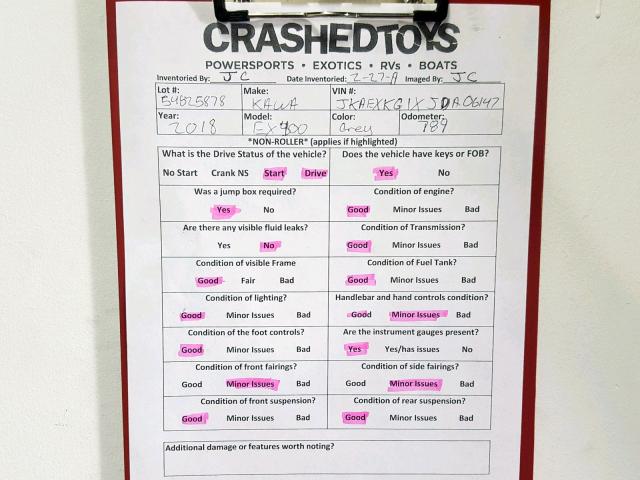 CRASHEDTOYS
POWERSPORTS • EXOTICS • RVs • BOATS
Inventoried By: JC Date Inventoried: 2-27-19 Imaged By: JC
Lot #: Make: VIN #:
54825878 KAWA JKAEXKG1XJDA06147
Year: Model: Color: Odometer:
2018 EX400 Grey 789
*NON-ROLLER* (applies if highlighted)
What is the Drive Status of the vehicle? Does the vehicle have keys or FOB?
No Start Crank NS Start Drive Yes No
Was a jump box required? Condition of engine?
Yes No Good Minor Issues Bad
Are there any visible fluid leaks? Condition of Transmission?
Yes No Good Minor Issues Bad
Condition of visible Frame Condition of Fuel Tank?
Good Fair Bad Good Minor Issues Bad
Condition of lighting? Handlebar and hand controls condition?
Good Minor Issues Bad Good Minor Issues Bad
Condition of the foot controls? Are the instrument gauges present?
Good Minor Issues Bad Yes Yes/has issues No
Condition of front fairings? Condition of side fairings?
Good Minor Issues Bad Good Minor Issues Bad
Condition of front suspension? Condition of rear suspension?
Good Minor Issues Bad Good Minor Issues Bad
Additional damage or features worth noting?